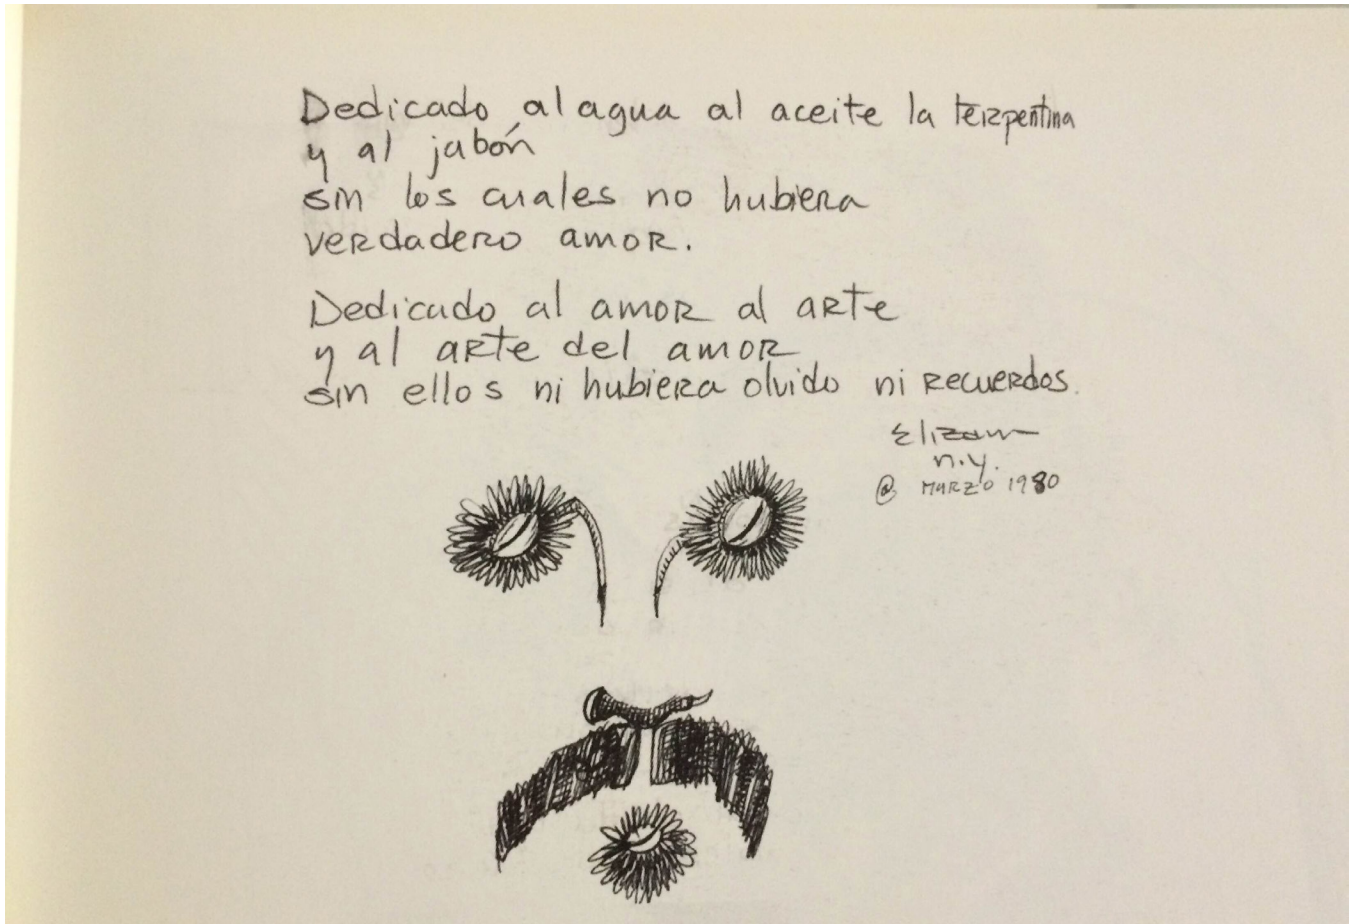 Dedicado al agua al aceite la terzpentina
y al jabón
sin los cuales no hubiera
verdadero amor.
Dedicado al amor al arte
y al arte del amor
sin ellos ni hubiera olvido ni recuerdos.
n.y.
@ MARZO 1980